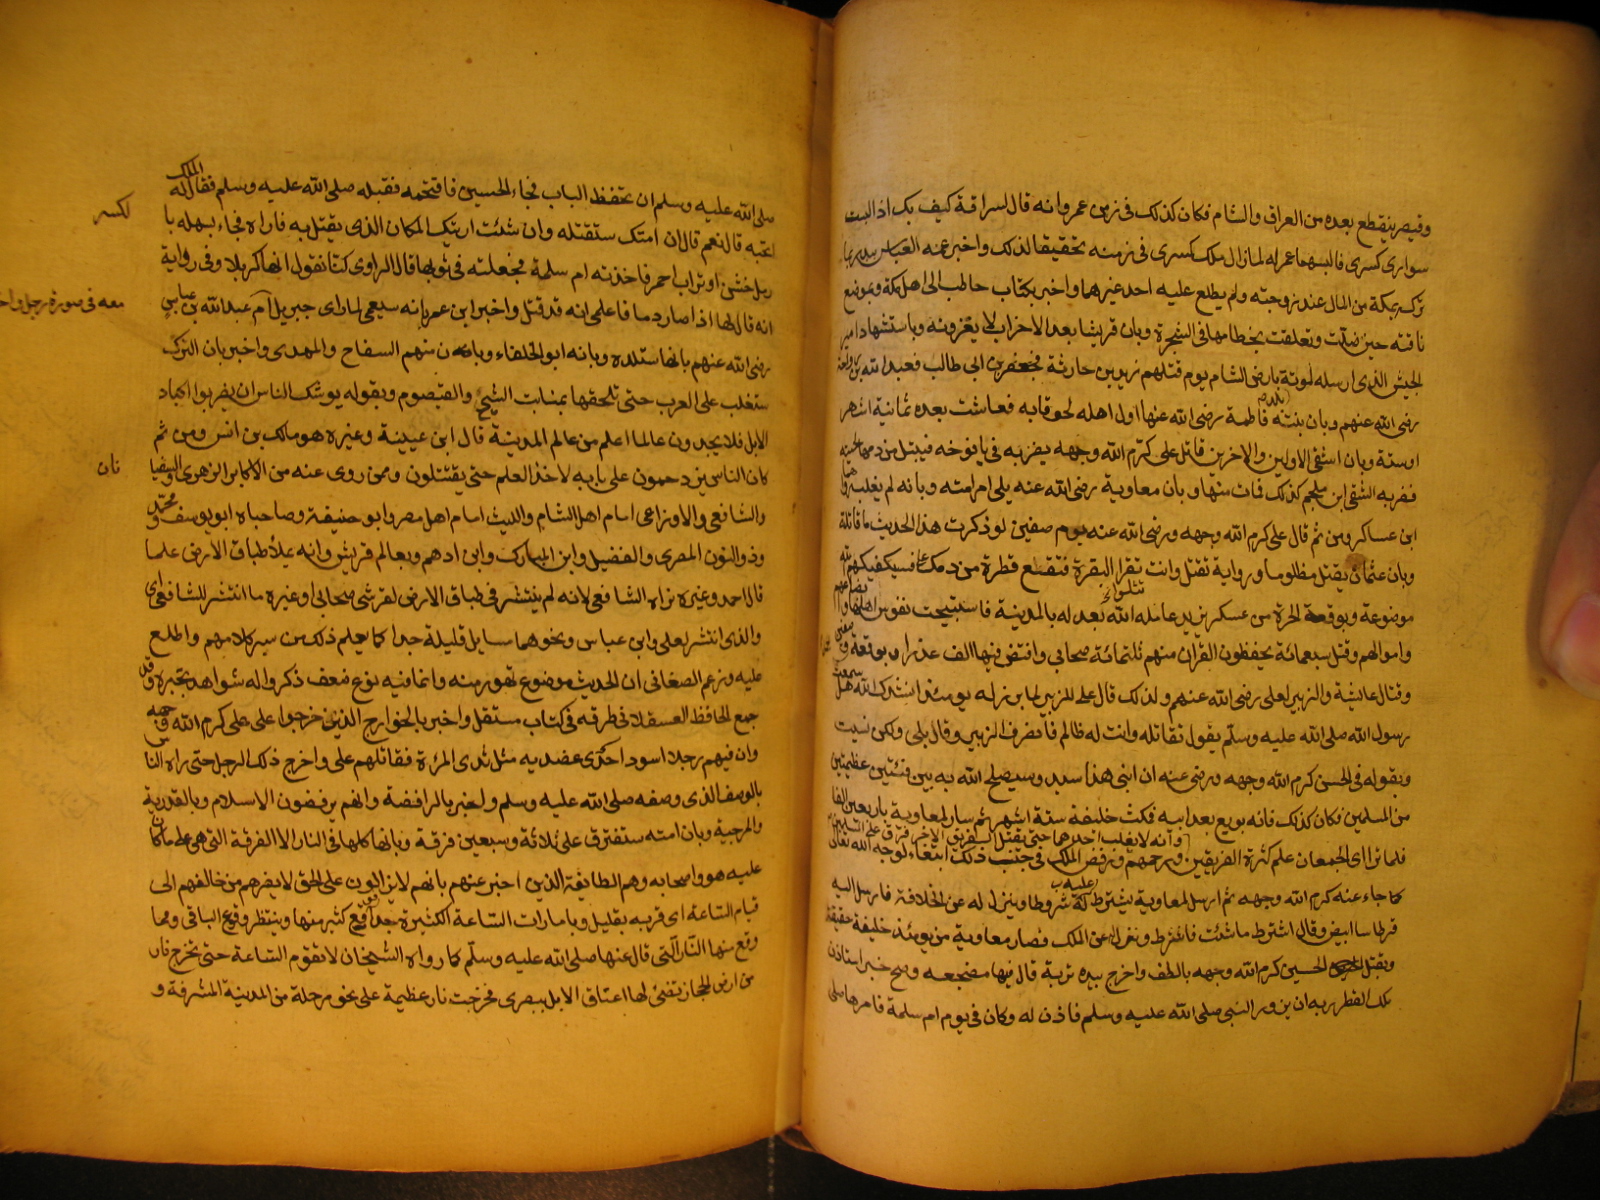 وقيصر ينقطع بعده من العراق والشام فكان كذلك في زمن عمر وانه قال لسراقة كيف بك اذا لبست
سواري كسرى فالبسهما عمر له لما زال ملك كسرى في زمنه تحقيقا لذلك واخبر عنه العباس
ترك بمكة من المال عند زوجته ولم يطلع عليه احد غيرهما واخبر بكتاب حاطب الى اهل مكة وبموضع
ناقته حين ضلت وتعلقت بخطامها في الشجرة وبان قريشا بعد الاحزاب لا يغزونه وباستشهاد امير
الجيش الذي ارسله لموتة بارض الشام يوم قتلهم زيد بن حارثة فجعفر بن ابي طالب فعبد الله بن رواحة
رضي الله عنهم وبان بنته فاطمة رضي الله عنها اول اهله لحوقا به فعاشت بعده ثمانية اشهر
او ستة وبان اشقى الاولين والاخرين قاتل علي كرم الله وجهه يضربه في يافوخه فيبتل من دمها لحيته
فضربه الشقي ابن ملجم كذلك فمات منها وبان معاوية رضي الله عنه يلي امر امته وبانه لم يغلب
ابن عساكر ومن ثم قال علي كرم الله وجهه ورضي الله عنه يوم صفين لو ذكرت هذا الحديث ما قاتلته
وبان عثمان يقتل مظلوما ورواية تقتل وانت تقرا البقرة فتقع قطرة من دمك على فسيكفيكهم الله
موضوعة وبوقعة الحرة من عسكر يزيد عامله الله بعدله بالمدينة فاستبيحت نفوس اهلها
واموالهم وقتل سبعمائة يحفظون القران منهم ثلثمائة صحابي وافتض فيها الف عذراء وبوقعة
وقتال عائشة والزبير لعلي رضي الله عنهم ولذلك قال علي للزبير لما برز له يومئذ انشدك الله هل سمعت
رسول الله صلى الله عليه وسلم يقول تقاتله وانت له ظالم فانصرف الزبير وقال بلى ولكن نسيت
وبقوله في الحسن كرم الله وجهه ورضي عنه ان ابني هذا سيد وسيصلح الله به بين فئتين عظيمتين
من المسلمين فكان كذلك فانه بويع بعد ابيه فمكث خليفة ستة اشهر ثم سار لمعاوية باربعين الفا
وانه لا يغلب احدهما حتى يقتل الفريق الاخر فرق على المسلمين
فلما تراءى الجمعان علم كثرة الفريقين ورحمهم ورفض الملك في جنب ذلك ابتغاء لوجه الله تعالى
كما جاء عنه كرم الله وجهه ثم ارسل لمعاوية يشترط عليه شروطا وينزل له عن الخلافة فارسل اليه
قرطاسا ابيض وقال اشترط ما شئت فاشترط ونزل عن الملك فصار معاوية من يومئذ خليفة حقيقة
وبقتل الحسين كرم الله وجهه بالطف واخرج بيده تربة قال فيها مضجعه وصح خبر استاذن
ملك القطر ربه ان يزور النبي صلى الله عليه وسلم فاذن له وكان في يوم ام سلمة فامرها صلى
صلى الله عليه وسلم ان تحفظ الباب فجاء الحسين فاقتحمه فقبله صلى الله عليه وسلم فقال له الملك
اتحبه قال نعم قال ان امتك ستقتله وان شئت اريتك المكان الذي يقتل به فاراه فجاء بسهلة با
رمل خشن او تراب احمر فاخذته ام سلمة فجعلته في ثوبها قال الراوي كنا نقول انها كربلا وفي رواية
انه قال لها اذا صار دما فاعلمي انه قد قتل واخبر ابن عمر بانه سيعمى لما راى جبريل ام عبد الله بن عباس
معه في صورة رجل
رضي الله عنهم بانها ستلده وبانه ابو الخلفاء وبانه من منهم السفاح والمهدي واخبر بان الترك
ستغلب على العرب حتى تلحقها بمنابت الشيح والقيصوم وبقوله يوشك الناس ان يضربوا اكباد
الابل فلا يجدون عالما اعلم من عالم المدينة قال ابن عيينة وغيره هو مالك بن انس ومن ثم
كان الناس يزدحمون على بابه لاخذ العلم حتى يقتتلون وممن روى عنه من الاكابر الزهري والسفيا
نان
والشافعي والاوزاعي امام اهل الشام والليث امام اهل مصر وابو حنيفة وصاحباه ابو يوسف ومحمد
وذو النون المصري والفضيل وابن المبارك وابن ادهم وبعالم قريش وانه يملأ طباق الارض علما
قال احمد وغيره نراه الشافعي لانه لم ينتشر في طباق الارض لقرشي صحابي او غيره ما انتشر للشافعي
والذي انتشر لعلي وابن عباس ونحوهما مسايل قليلة جدا كما يعلم ذلك من سير كلامهم واطلع
عليه وزعم الصغاني ان الحديث موضوع تهور منه وانما فيه نوع ضعف ذكروا له شواهد تجبره وقد
جمع الحافظ العسقلاني طرقه في كتاب مستقل واخبر بالخوارج الذين خرجوا على علي كرم الله وجهه
وان فيهم رجلا اسود احدى عضديه مثل ثدي المرءة فقاتلهم علي واخرج ذلك الرجل حتى راه الناس
بالوصف الذي وصفه صلى الله عليه وسلم واخبر بالرافضة وانهم يرفضون الاسلام وبالقدرية
والمرجية وبان امته ستفترق على ثلاثة وسبعين فرقة وبانها كلها في النار الا الفرقة التي هي على ما كان
عليه هو واصحابه وهم الطائفة الذين اخبر عنهم بانهم لا يزالون على الحق لا يضرهم من خالفهم الى
قيام الساعة اي قربه بقليل وبامارات الساعة الكثيرة جدا وقع كثير منها وينتظر وقوع الباقي ومما
وقع منها النار التي قال عنها صلى الله عليه وسلم كما رواه الشيخان لا تقوم الساعة حتى تخرج نار
من ارض الحجاز تضئ لها اعناق الابل ببصرى فخرجت نار عظيمة على نحو مرحلة من المدينة المشرفة و